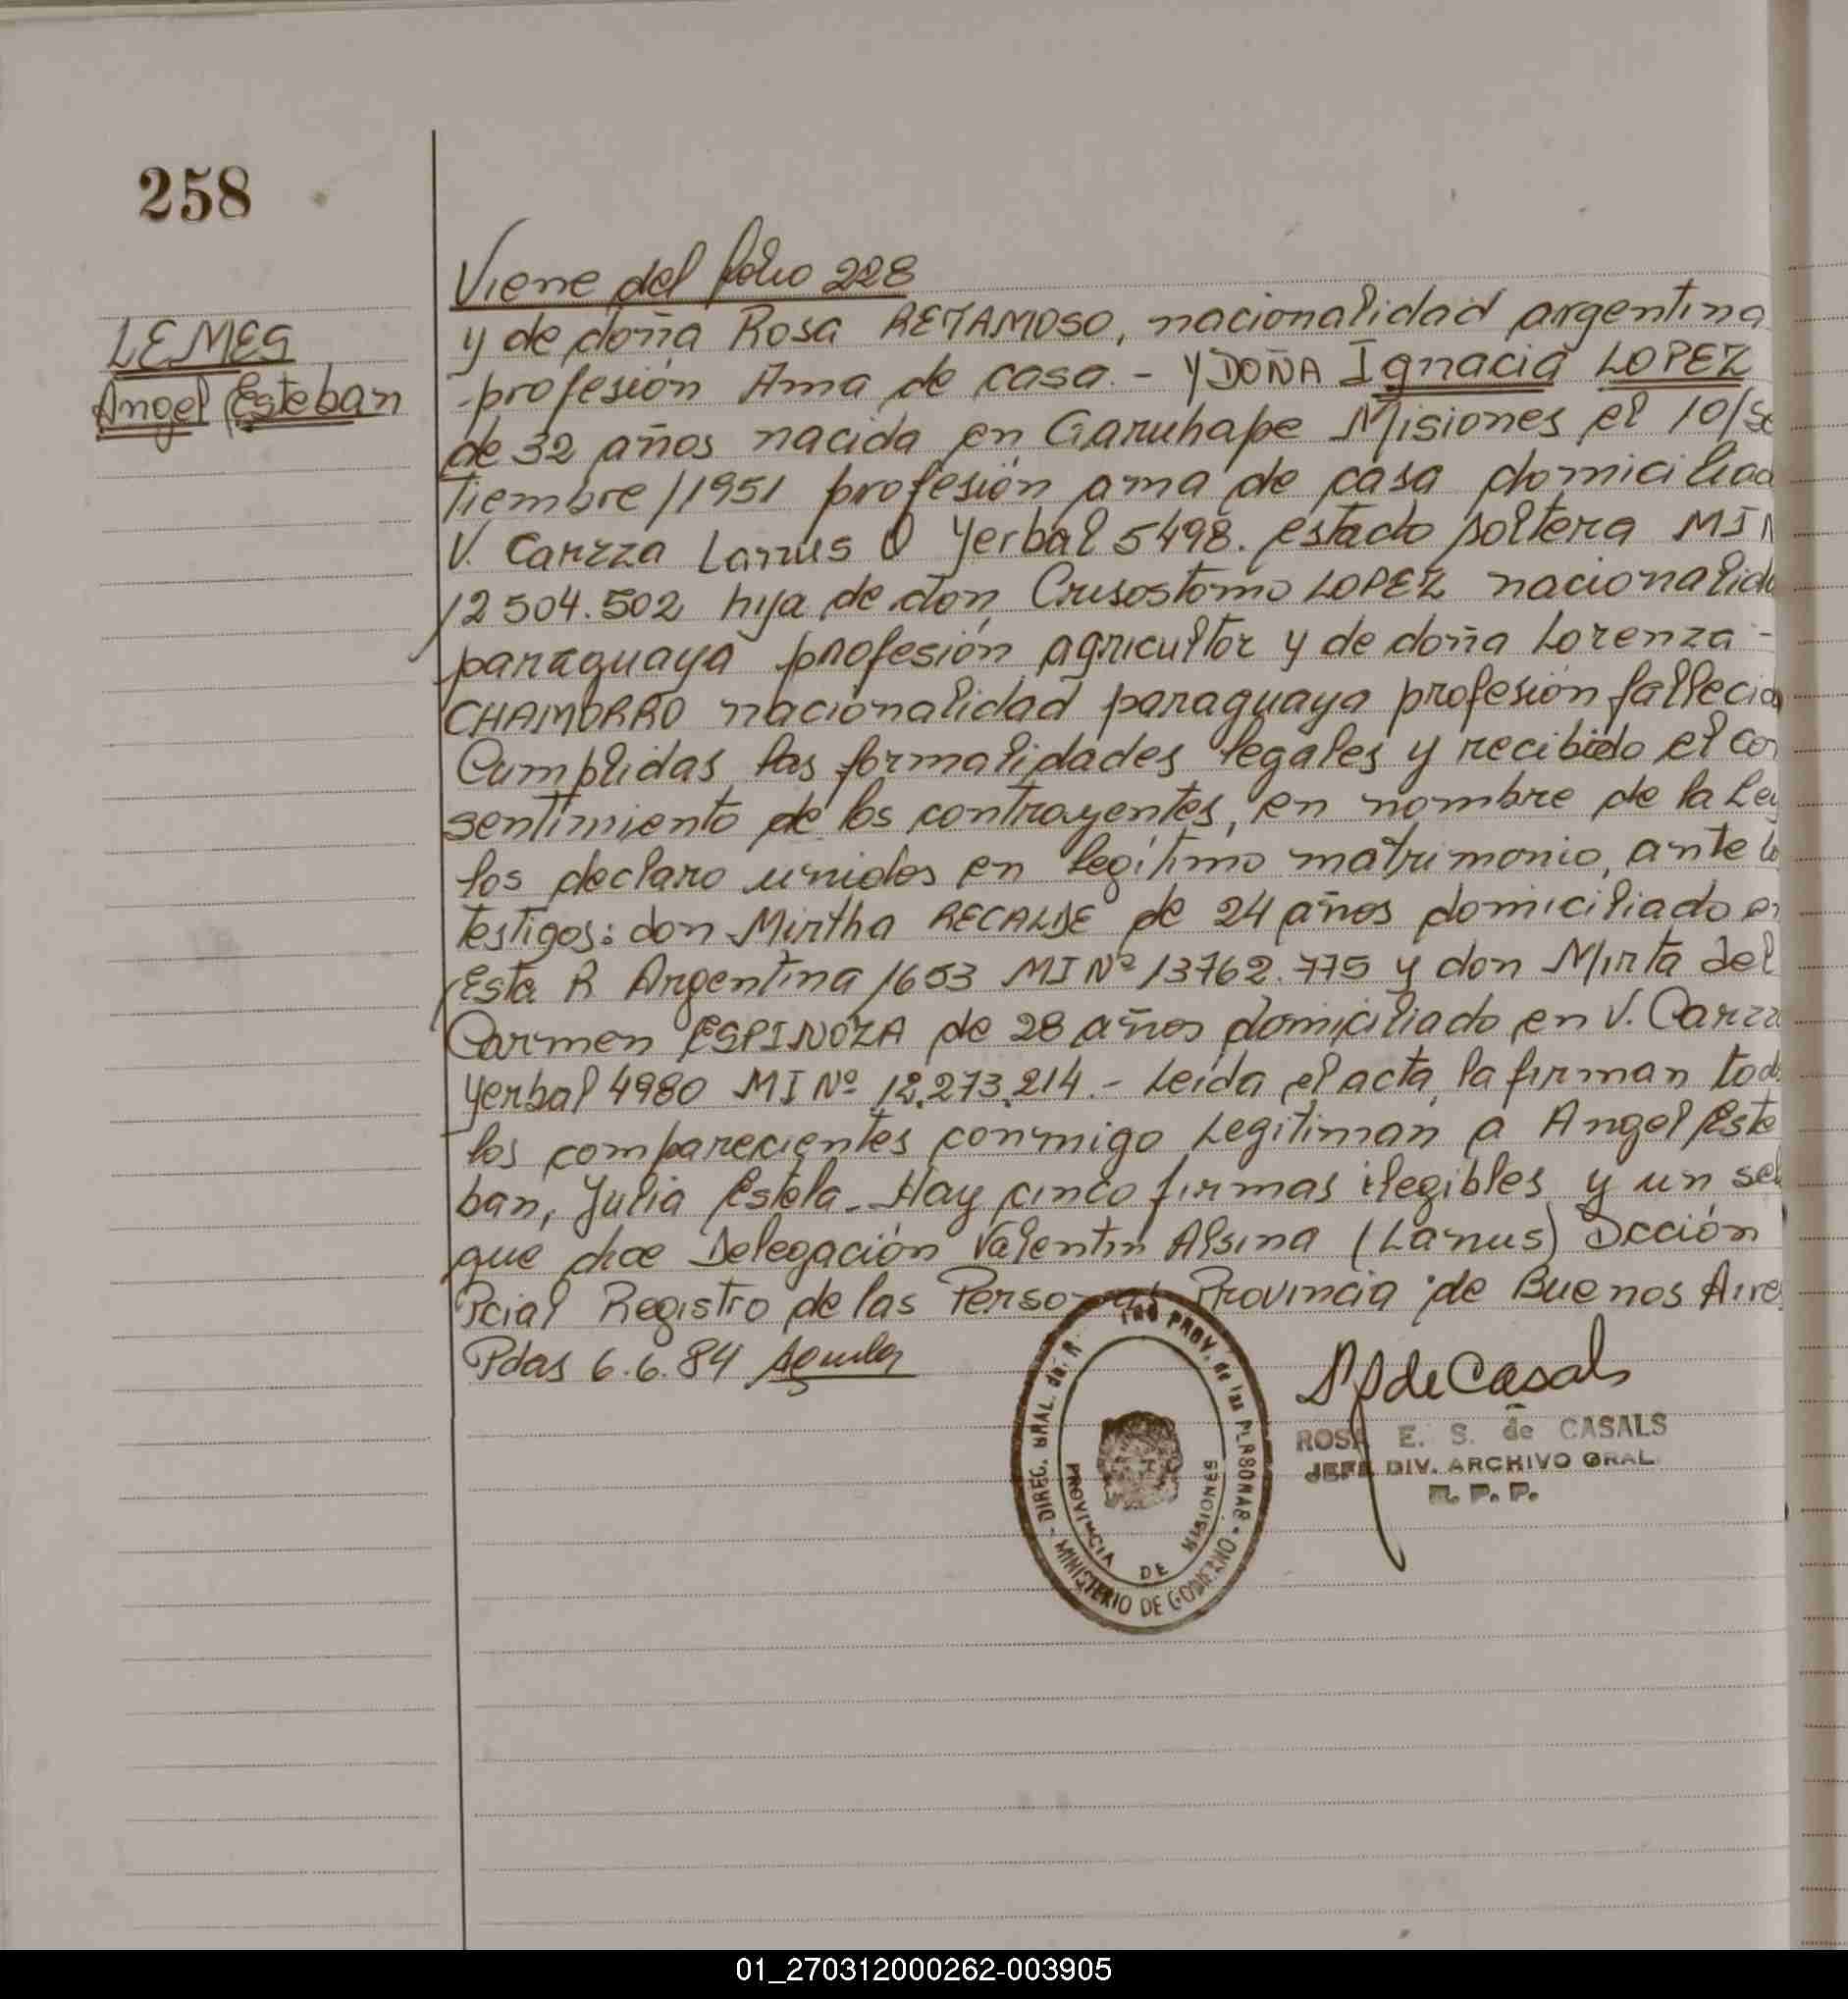 258
Viene del folio 228
LEMES
Angel Esteban
y de doña Rosa RETAMOSO, nacionalidad argentina
-profesión Ama de casa.- Y DOÑA Ignacia LOPEZ
de 32 años nacida en Garuhape Misiones el 10/Se
tiembre/1951 profesión ama de casa domiciliad
V. Carzza Lanus Yerbal 5498. estado soltera MI N
12504.502 hija de don Crisostomo LOPEZ nacionalida
paraguaya profesión agricultor y de doña Lorenza -
CHAMORRO nacionalidad paraguaya profesión fallecid
Cumplidas las formalidades legales y recibido el con
sentimiento de los contrayentes, en nombre de la Ley
los declaro unidos en legítimo matrimonio, ante lo
testigos: don Mirtha RECALDE de 24 años domiciliado en
Esta R Argentina 1653 MI Nº 13762.775 y don Mirta del
Carmen ESPINOZA de 28 años domiciliado en V. Carzza
Yerbal 4980 MI Nº 12.273.214.- Leída el acta, la firman tod
los comparecientes conmigo Legitiman a Angel Este
ban, Julia Estela. Hay cinco firmas ilegibles y un sel
que dice Delegación Valentín Alsina (Lanus) Dcción
Pcial Registro de las Personas Provincia de Buenos Aire
Pdas 6.6.84
de Casals
ROSA E. S. de CASALS
JEFE DIV. ARCHIVO GRAL
R. P. P.
DIREC. GRAL. de. R PROV. de las PERSONAS
MINISTERIO DE GOBIERNO
PROVINCIA DE MISIONES
01_270312000262-003905